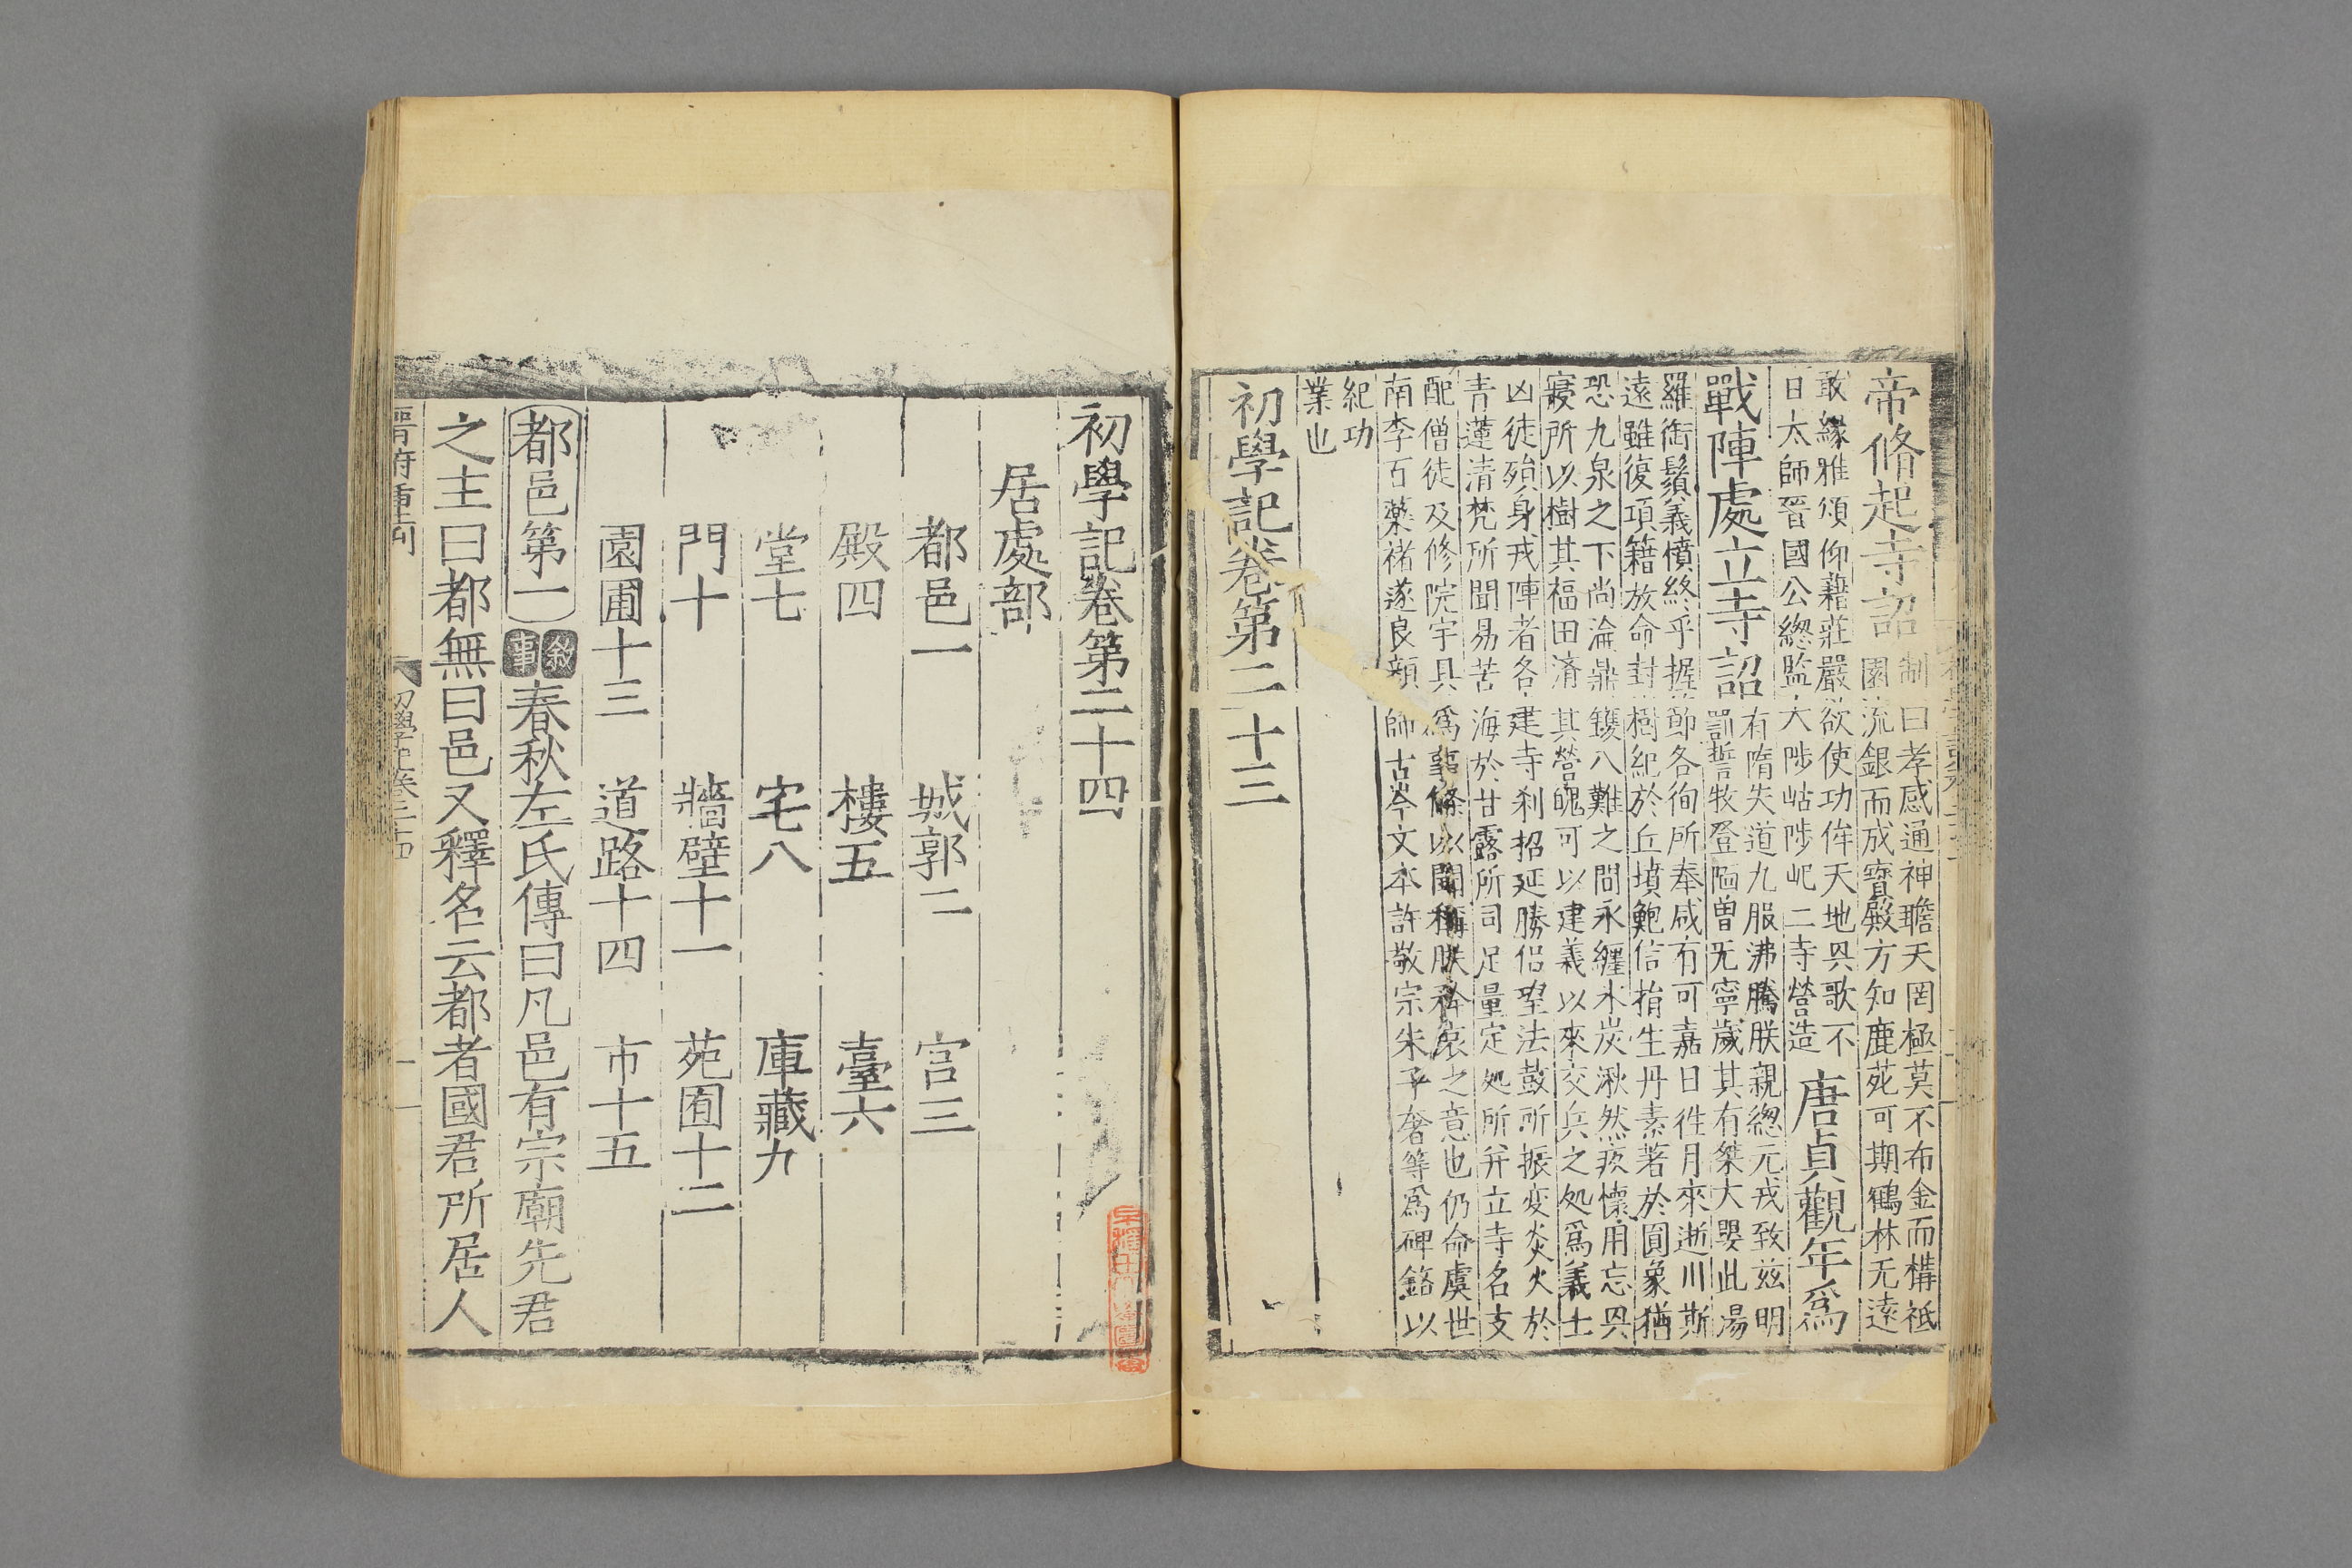 帝脩起寺詔
制曰孝感通神瞻天罔極莫不布金而構祗
園流銀而成寳殿方知鹿苑可期鶴林无遠
敢緣雅頌仰藉莊嚴欲使功侔天地興歌不
日太師晉國公緫監大陟岵陟屺二寺營造
唐貞觀年爲
戰陣處立寺詔
有隋失道九服沸騰朕親緫元戎致兹明
罰誓牧登陑曽无寧歲其有桀犬嬰此湯
羅銜鬚義憤終乎握節各徇所奉咸有可嘉日徃月來逝川斯
遠雖復項籍放命封樹紀於丘墳鮑信捐生丹素著於圓象猶
恐九泉之下尚淪鼎鑊八難之間永纏氷炭湫然疚懷用忘興
寢所以樹其福田濟其營魄可以建義以來交兵之処爲義士
凶徒殞身戎陣者各建寺刹招延勝侣望法鼓所振変炎火於
青蓮清梵所聞易苦海於甘露所司足量定処所并立寺名支
配僧徒及修院宇具爲事條以聞稱朕矜哀之意也仍命虞世
南李百藥褚遂良顔師古岑文本許敬宗朱子奢等爲碑銘以
紀功
業也
初學記卷第二十三
初學記卷第二十四
居處部
都邑一 城郭二 宮三
殿四 樓五 臺六
堂七 宅八 庫藏九
門十 牆壁十一 苑囿十二
園圃十三 道路十四 市十五
都邑第一 敘事 春秋左氏傳曰凡邑有宗廟先君
之主曰都無曰邑又釋名云都者國君所居人
晉府重刊 初學記卷二十四 一